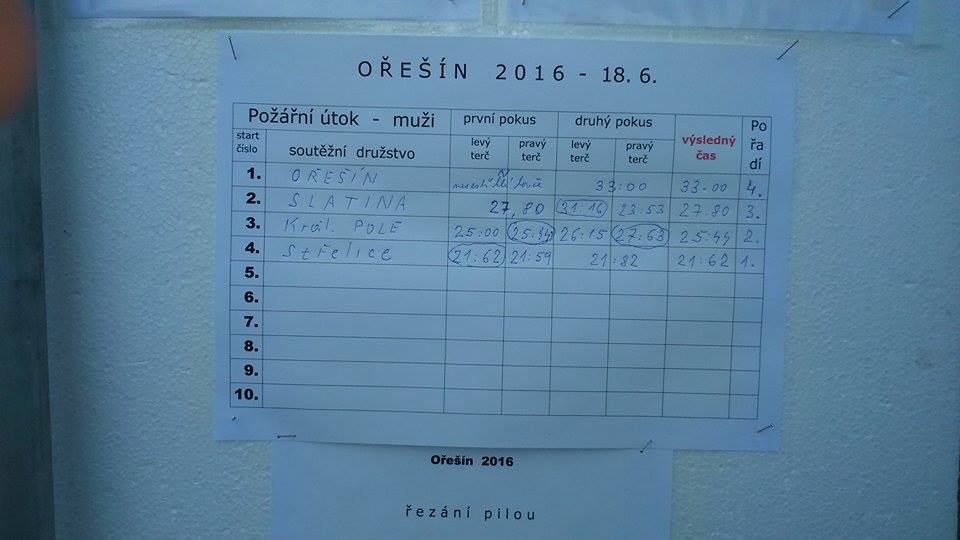 OŘEŠÍN 2016 - 18. 6.
Požářní útok - muži první pokus druhý pokus výsledný čas Po řa dí
start číslo soutěžní družstvo levý terč pravý terč levý terč pravý terč
1. OŘEŠÍN 33:00 33-00 4.
2. SLATINA 27,80 31:16 23:53 27:80 3.
3. Král. POLE 25:00 25:44 26:15 27:63 25:44 2.
4. Střelice 21:62 21:59 21:82 21:62 1.
5.
6.
7.
8.
9.
10.
Ořešín 2016
řezání pilou